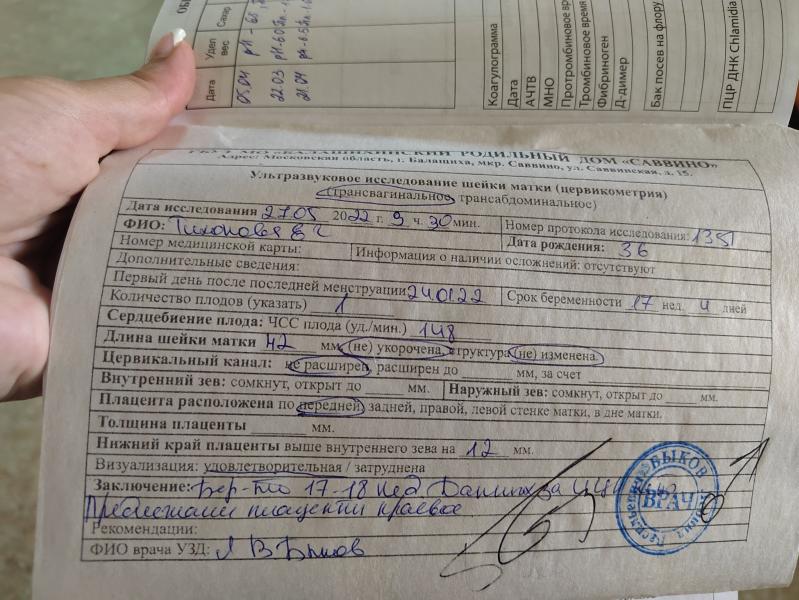 Дата
Удел вес
Сахар
05.04
22.03
21.04
Коагулограмма
Дата
АЧТВ
МНО
Протромбиновое вр
Тромбиновое время
Фибриноген
Д-димер
Бак посев на флору
ПЦР ДНК Chlamidia
ГБУЗ МО «БАЛАШИХИНСКИЙ РОДИЛЬНЫЙ ДОМ «САВВИНО»
Адрес: Московская область, г. Балашиха, мкр. Саввино, ул. Саввинская, д. 15.
Ультразвуковое исследование шейки матки (цервикометрия)
(трансвагинальное, трансабдоминальное)
Дата исследования 27.05 2022 г. 9 ч. 30 мин.
Номер протокола исследования: 1351
ФИО:
Дата рождения: 36
Номер медицинской карты:
Информация о наличии осложнений: отсутствуют
Дополнительные сведения:
Первый день после последней менструации 24.01.22
Срок беременности 17 нед. 4 дней
Количество плодов (указать) 1
Сердцебиение плода: ЧСС плода (уд./мин.) 148
Длина шейки матки 42 мм, (не) укорочена, структура (не) изменена.
Цервикальный канал: не расширен, расширен до мм, за счет
Внутренний зев: сомкнут, открыт до мм.
Наружный зев: сомкнут, открыт до мм.
Плацента расположена по передней, задней, правой, левой стенке матки, в дне матки.
Толщина плаценты мм.
Нижний край плаценты выше внутреннего зева на 12 мм.
Визуализация: удовлетворительная / затруднена
Заключение: Бер-ть 17-18 нед Данных за ИЦН нет
Предлежание плаценты краевое
Рекомендации:
ФИО врача УЗД: Л В Быков
БЫКОВ
ВРАЧ